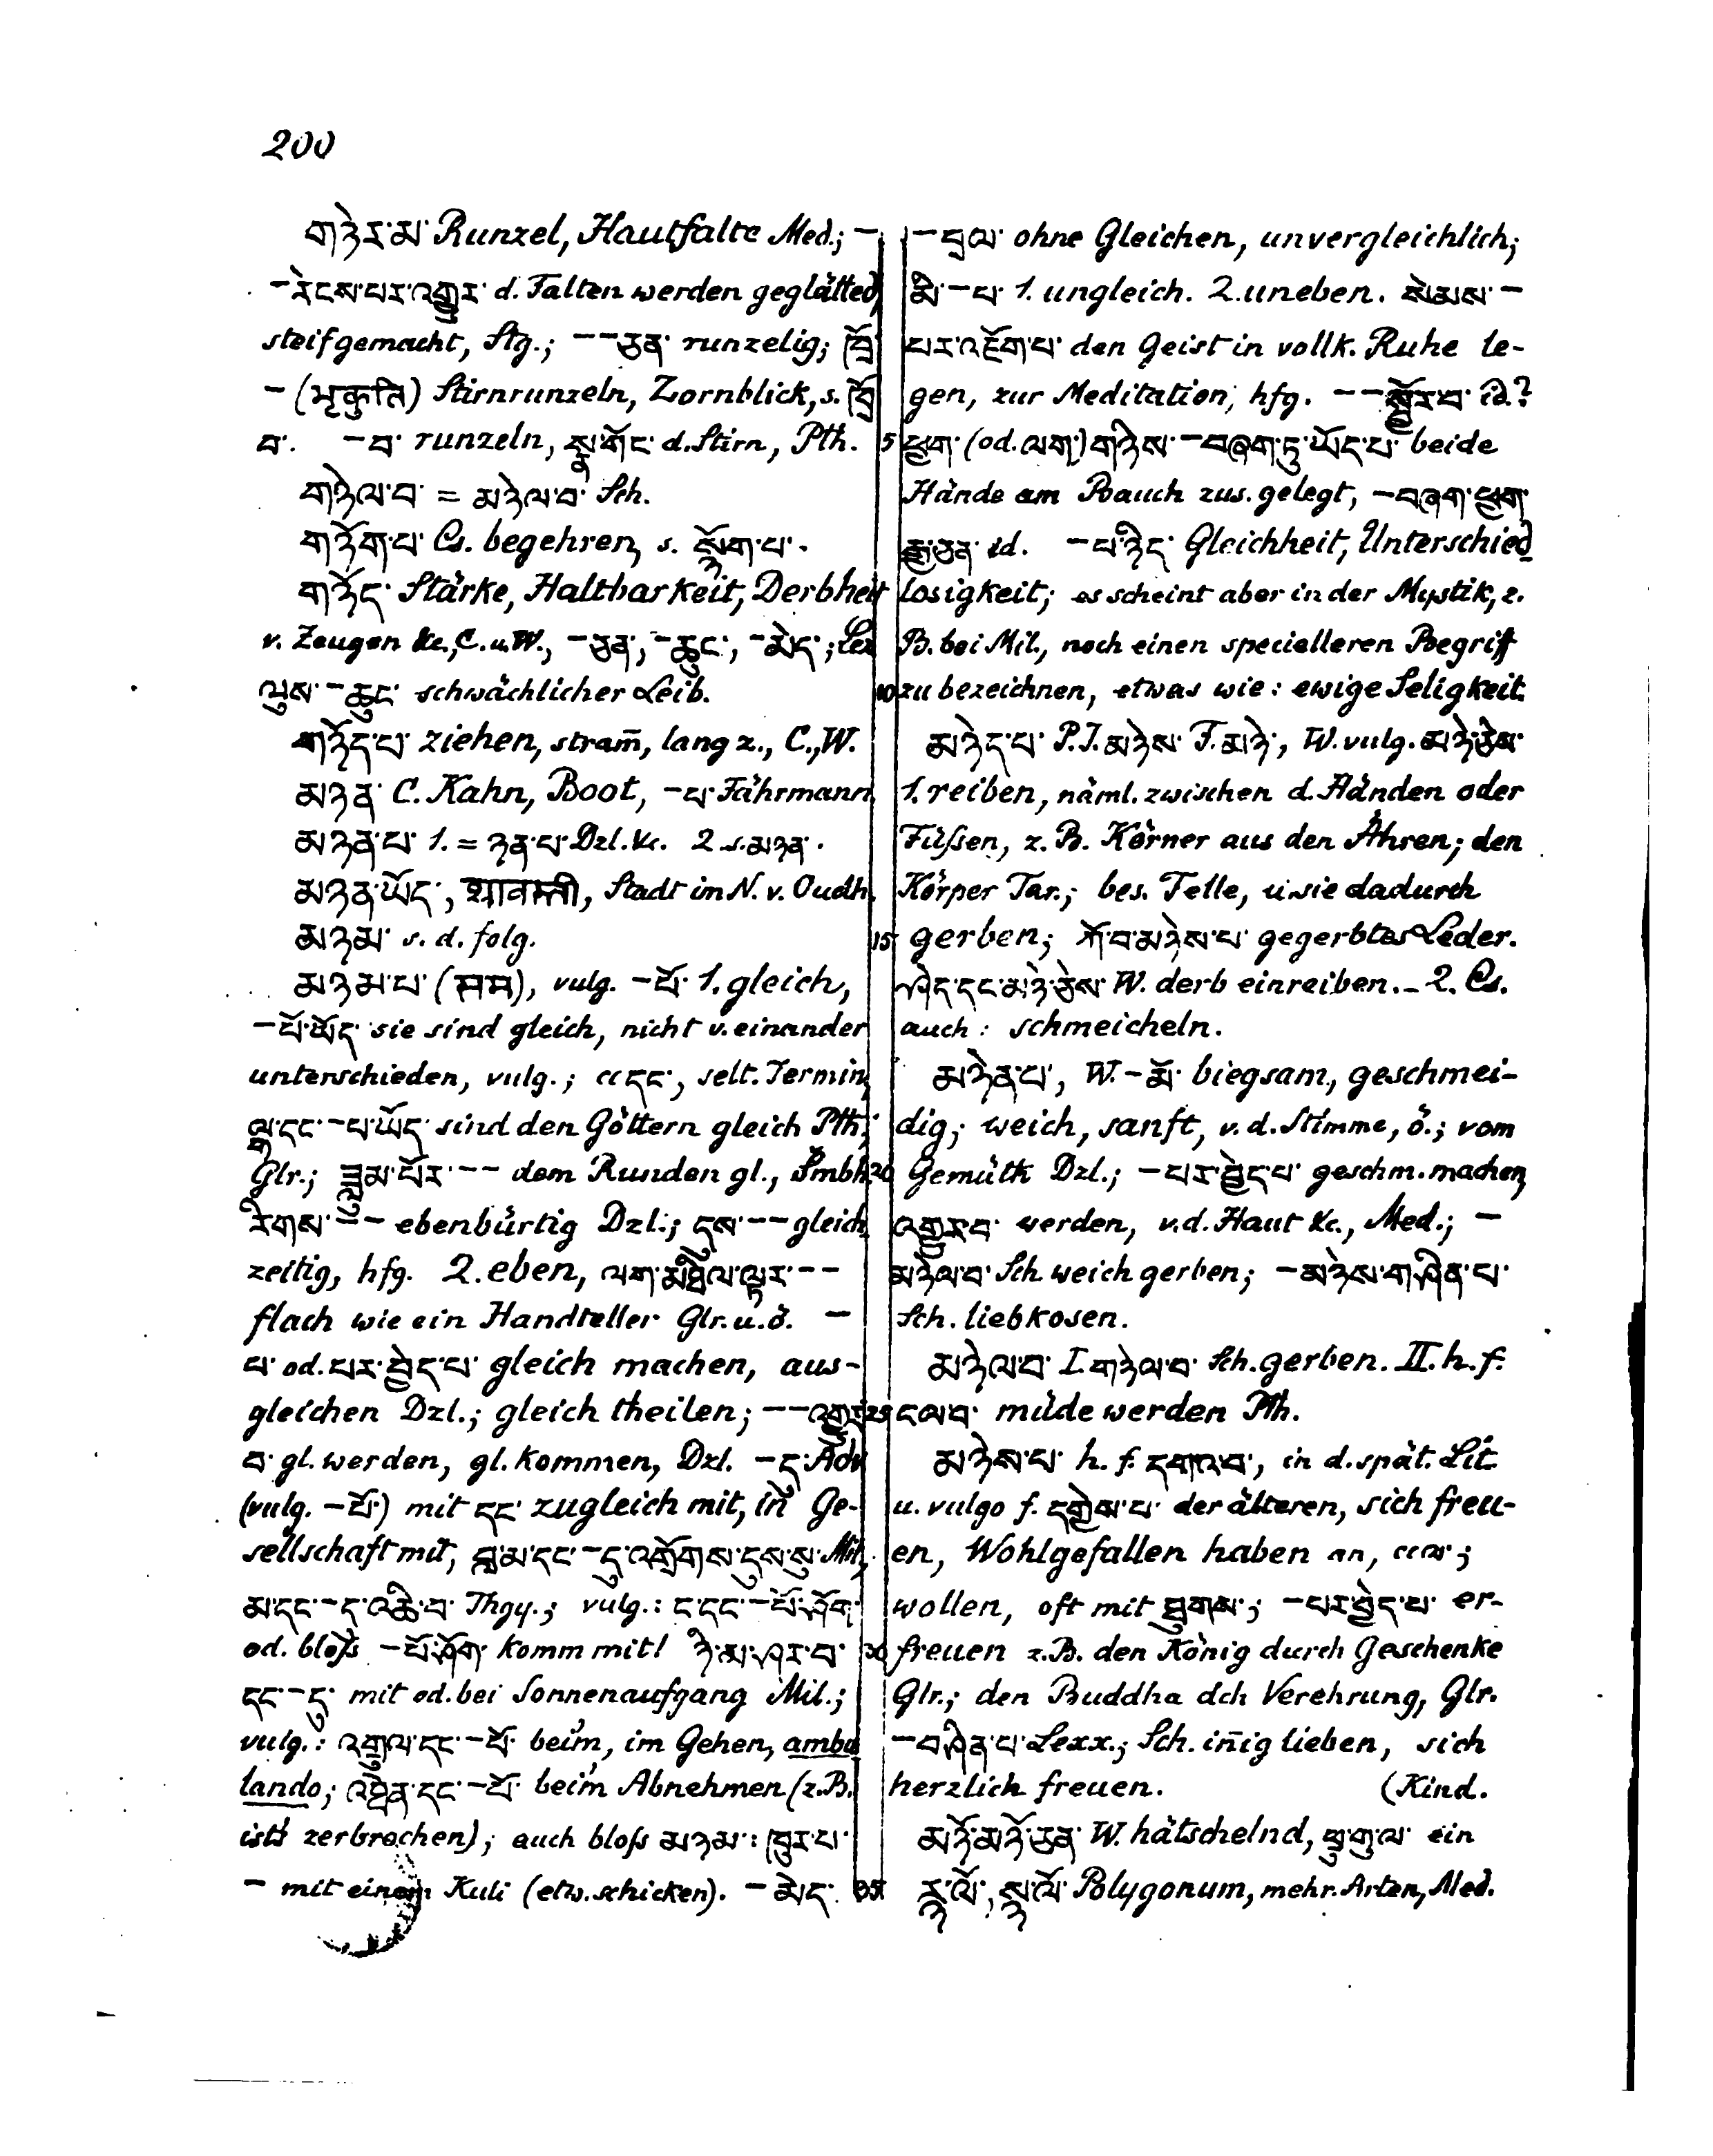 200
གཉེར་མ་ Runzel, Hautfalte Med.; –
– རེངས་པར་འགྱུར་ d. Falten werden geglättet,
steif gemacht, Stg.; – – ཅན་ runzelig; ཁྲོ་
– (भृकुति) Stirnrunzeln, Zornblick, s. ཁྲོ་
བ་. – བ་ runzeln, སྣ་གོང་ d. Stirn, Pth.
གཉེལ་བ་ = མཉེལ་བ་ Sch.
གཉོག་པ་ Cs. begehren, s. སྙོག་པ་.
གཉོད་ Stärke, Haltbarkeit, Derbheit
v. Zeugen &c., C. u. W., – ཅན་, – ཆུང་, – མེད་; Lex
ལུས་ – ཆུང་ schwächlicher Leib.
གཉོད་པ་ ziehen, stram̄, lang z., C., W.
མཉན་ C. Kahn, Boot, – པ་ Fährmann.
མཉན་པ་ 1. = ཉན་པ་ Dzl. &c. 2 s. མཉན་.
མཉན་ཡོད་, श्रावस्ती, Stadt im N. v. Oudh.
མཉམ་ s. d. folg.
མཉམ་པ་ (सम), vulg. – པོ་ 1. gleich,
– པོ་ཡོད་ sie sind gleich, nicht v. einander
unterschieden, vulg.; cc དང་, selt. Termin,
ལྷ་དང་ – པ་ཡོད་ sind den Göttern gleich Pth.;
Glr.; ཟླུམ་པོར་ – – dem Runden gl., Smbh.
རིགས་ – – ebenbürtig Dzl.; དུས་ – – gleich
zeitig, hfg. 2. eben, ལག་མཐིལ་ལྟར་ – –
flach wie ein Handteller Glr. u. ö. –
པ་ od. པར་བྱེད་པ་ gleich machen, aus-
gleichen Dzl.; gleich theilen; – – འགྱུར་
བ་ gl. werden, gl. kommen, Dzl. – དུ་ Adv
(vulg. – པོ་) mit དང་ zugleich mit, in Ge-
sellschaft mit, བླ་མ་དང་ – དུ་འགྲོགས་དུས་སུ་ Mil.
མ་དང་ – དུ་འཆི་བ་ Thgy.; vulg.: ང་དང་ – པོ་ཤོག་
od. bloss – པོ་ཤོག་ komm mit! ཉི་མ་ཤར་བ་
དང་ – དུ་ mit od. bei Sonnenaufgang Mil.;
vulg.: འགྲུལ་དང་ – པོ་ beim, im Gehen, ambu
lando; འཐེན་དང་ – པོ་ beim Abnehmen (z. B.
ist's zerbrochen); auch bloss མཉམ་: ཁུར་པ་
– mit einem Kuli (etw. schicken). – མེད་
– བྲལ་ ohne Gleichen, unvergleichlich;
མི་ – པ་ 1. ungleich. 2. uneben. སེམས་ –
པར་འཇོག་པ་ den Geist in vollk. Ruhe le-
gen, zur Meditation, hfg. – – སྦྱོར་བ་ id.?
5 ཕྱག་ (od. ལག་) གཉིས་ – བཞག་ཏུ་ཡོད་པ་ beide
Hände am Bauch zus. gelegt, – བཞག་ཕྱག་
རྒྱ་ཅན་ id. – པ་ཉིད་ Gleichheit, Unterschied
losigkeit; es scheint aber in der Mystik, z.
B. bei Mil., noch einen specielleren Begriff
10 zu bezeichnen, etwas wie: ewige Seligkeit.
མཉེད་པ་ P. I. མཉེས་ F. མཉེ་, W. vulg. མཉེ་ཅེས་
1. reiben, näml. zwischen d. Händen oder
Füssen, z. B. Körner aus den Ähren; den
Körper Tar.; bes. Felle, u. sie dadurch
15 gerben; ཀོ་བ་མཉེས་པ་ gegerbtes Leder.
ཤེད་དང་མཉེ་ཅེས་ W. derb einreiben. – 2. Cs.
auch: schmeicheln.
མཉེན་པ་, W. – མོ་ biegsam, geschmei-
dig; weich, sanft, v. d. Stimme, ö.; vom
20 Gemüth Dzl.; – པར་བྱེད་པ་ geschm. machen,
འགྱུར་བ་ werden, v. d. Haut &c., Med.; –
མཉེལ་བ་ Sch. weich gerben; – མཉེས་གཤིན་པ་
Sch. liebkosen.
མཉེལ་བ་ I. གཉེལ་བ་ Sch. gerben. II. h. f.
25 ངལ་བ་ müde werden Pth.
མཉེས་པ་ h. f. དགའ་བ་, in d. spät. Lit.
u. vulgo f. དགྱེས་པ་ der älteren, sich freu-
en, Wohlgefallen haben an, cc ལ་;
wollen, oft mit ཐུགས་; – པར་བྱེད་པ་ er-
30 freuen z. B. den König durch Geschenke
Glr.; den Buddha dch Verehrung, Glr.
– བཤིན་པ་ Lexx.; Sch. in̄ig lieben, sich
herzlich freuen. (Kind.
མཉོ་མཉོ་ཅན་ W. hätschelnd, ཕྲུ་གུ་ལ་ ein
35 རྙ་ལོ་, སྙ་ལོ་ Polygonum, mehr. Arten, Med.